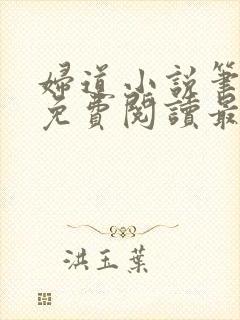 婦道小說筆
免費閱讀最
洪玉葉